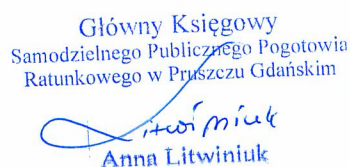 Główny Księgowy
Samodzielnego Publicznego Pogotowia
Ratunkowego w Pruszczu Gdańskim
Litwiniuk
Anna Litwiniuk